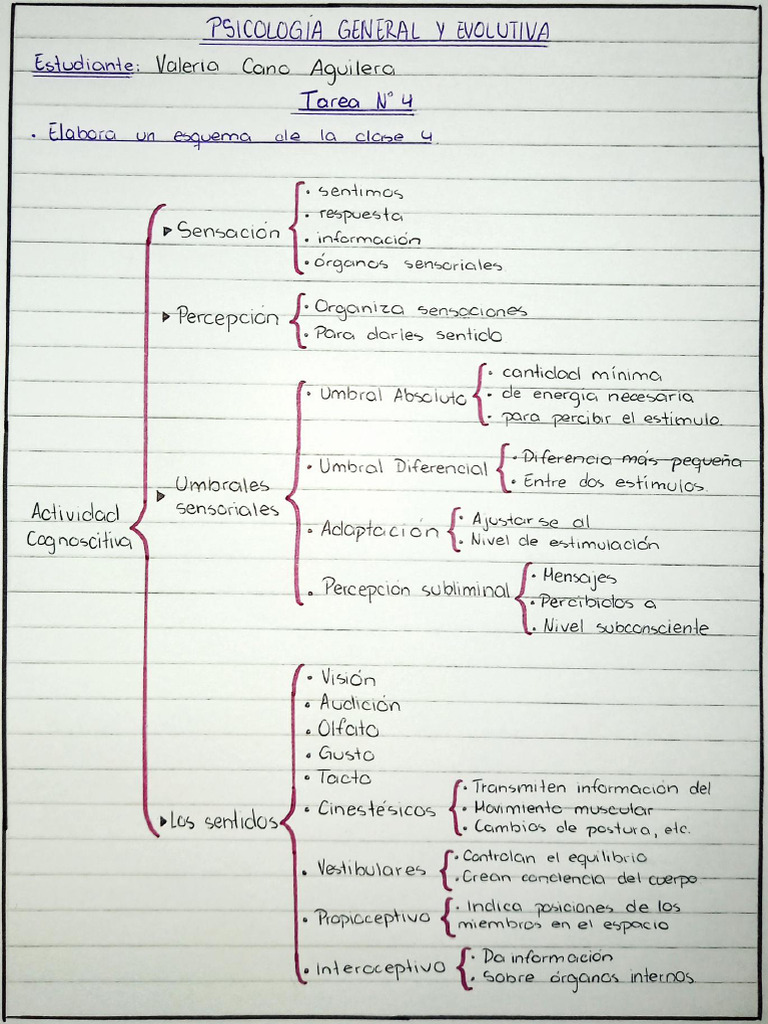 PSICOLOGÍA GENERAL Y EVOLUTIVA
Estudiante: Valeria Cano Aguilera
Tarea N° 4
• Elabora un esquema de la clase 4
Actividad
Cognoscitiva
▸ Sensación
• sentimos
• respuesta
• información
• órganos sensoriales
▸ Percepción
• Organiza sensaciones
• Para darles sentido
▸ Umbrales
sensoriales
• Umbral Absoluto
• cantidad mínima
• de energía necesaria
• para percibir el estímulo.
• Umbral Diferencial
• Diferencia más pequeña
• Entre dos estímulos.
• Adaptación
• Ajustarse al
• Nivel de estimulación
• Percepción subliminal
• Mensajes
• Percibidos a
• Nivel subconsciente
▸ Los sentidos
• Visión
• Audición
• Olfato
• Gusto
• Tacto
• Cinestésicos
• Transmiten información del
• Movimiento muscular
• Cambios de postura, etc.
• Vestibulares
• Controlan el equilibrio
• Crean conciencia del cuerpo
• Propioceptivo
• Indica posiciones de los
miembros en el espacio
• Interoceptivo
• Da información
• Sobre órganos internos